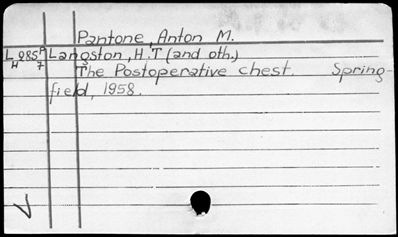 Pantone, Anton M.
L 985 A Langston, H.T (and oth.)
H 7 The Postoperative chest. Spring-
field, 1958.